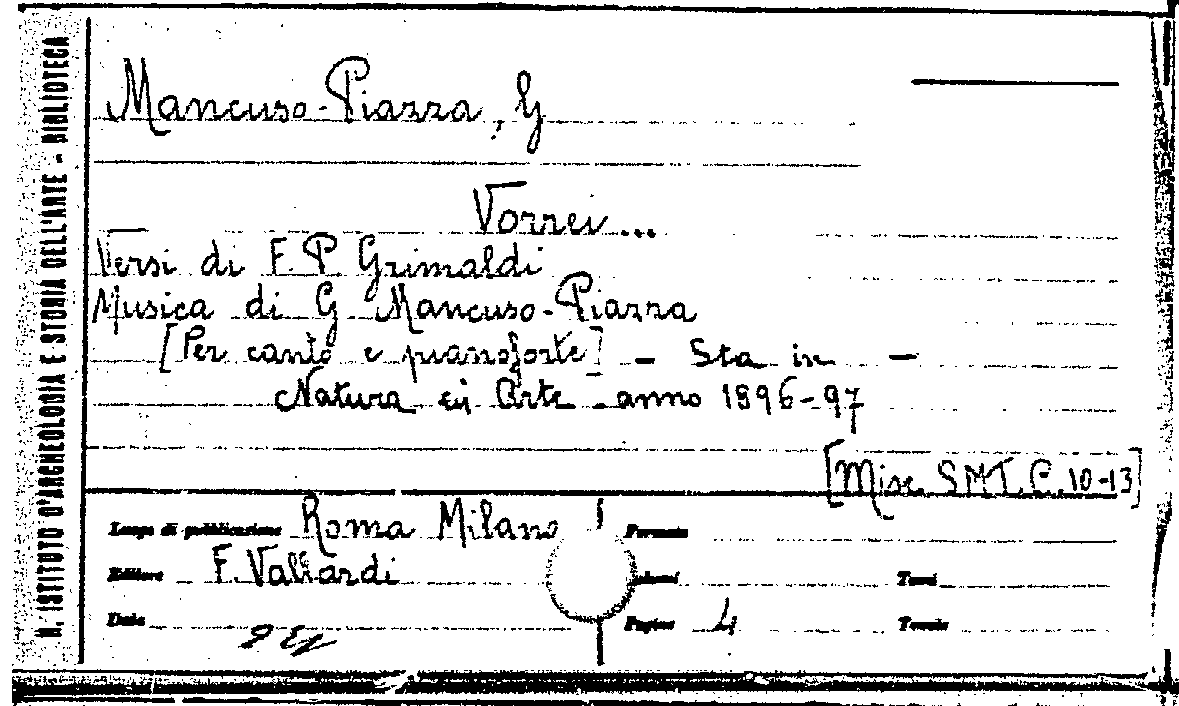 R. ISTITUTO D'ARCHEOLOGIA E STORIA DELL'ARTE - BIBLIOTECA
Mancuso-Piazza, G
Vorrei...
Versi di F. P Grimaldi
Musica di G Mancuso-Piazza
[Per canto e pianoforte] - Sta in -
Natura ed Arte anno 1896-97
[Misc. SMT. C. 10-13]
Luogo di pubblicazione Roma Milano Formato
Editore F. Vallardi Volumi Tomi
Data Pagine 4 Tavole